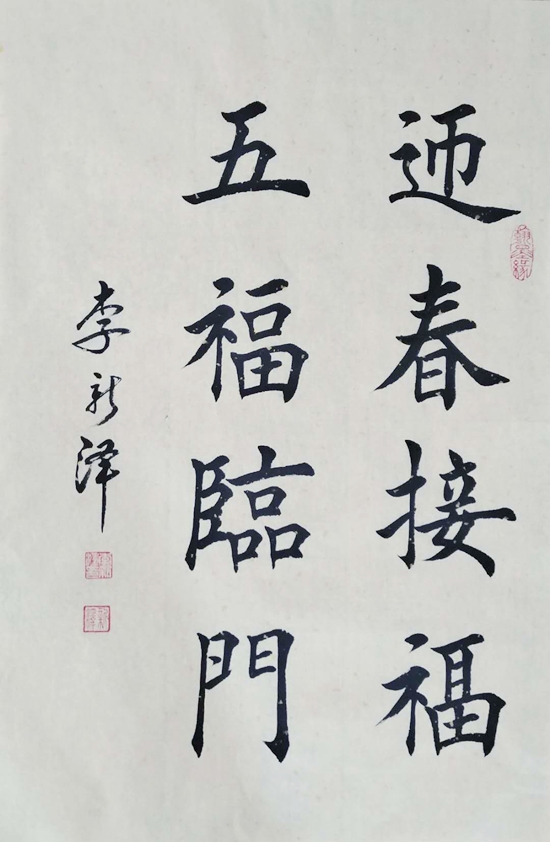 迊春接福
五福臨門
李新泽